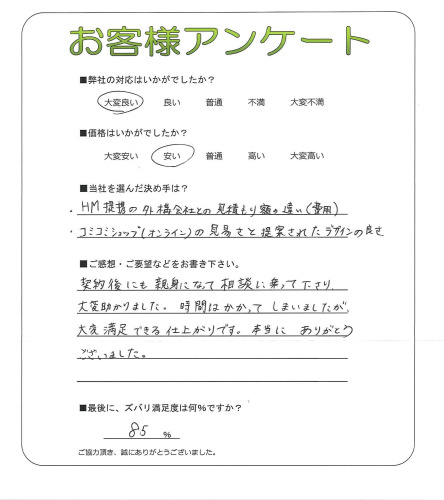 お客様アンケート
■弊社の対応はいかがでしたか？
大変良い 良い 普通 不満 大変不満
■価格はいかがでしたか？
大変安い 安い 普通 高い 大変高い
■当社を選んだ決め手は？
・HM提携の外構会社との見積もり額の違い(費用)
・コミコミショップ(オンライン)の見易さと提案されたデザインの良さ
■ご感想・ご要望などをお書き下さい。
契約後にも親身になって相談に乗って下さり、
大変助かりました。時間はかかってしまいましたが、
大変満足できる仕上がりです。本当にありがとう
ございました。
■最後に、ズバリ満足度は何％ですか？
85 %
ご協力頂き、誠にありがとうございました。